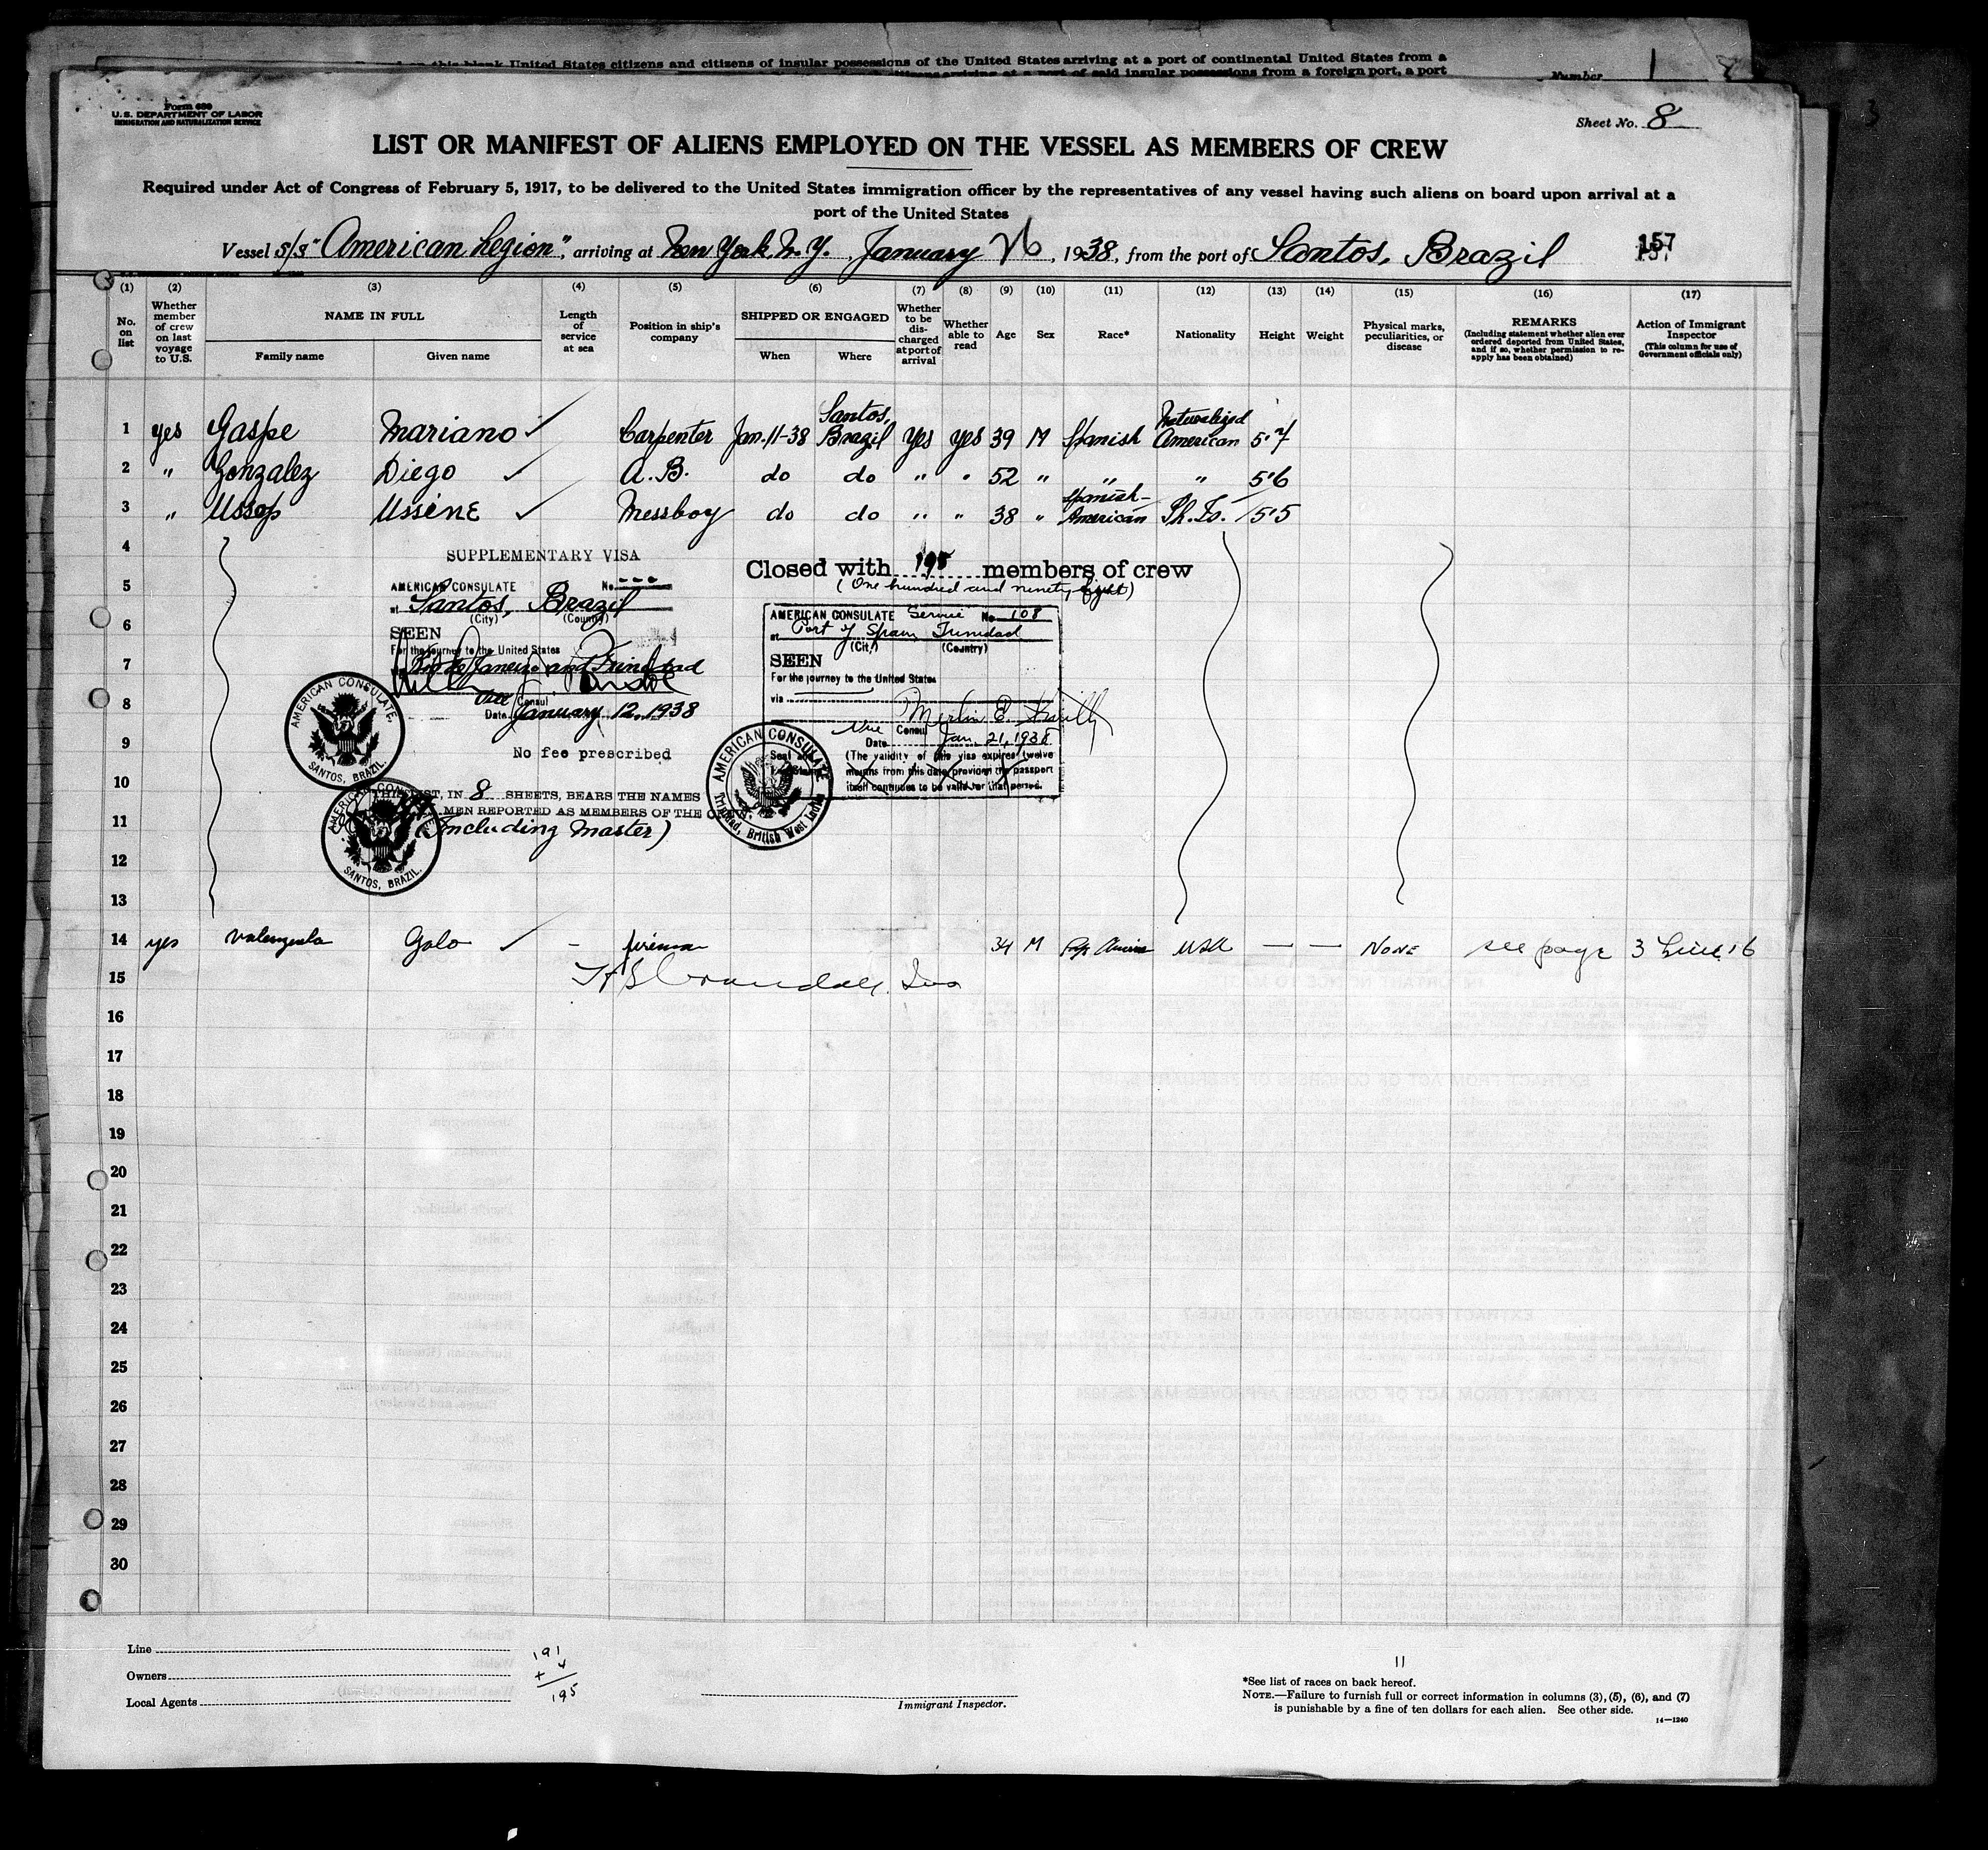 on this blank United States citizens and citizens of insular possessions of the United States arriving at a port of continental United States from a
a port of said insular possessions from a foreign port, a port
Number 1
3
Form 680
U.S. DEPARTMENT OF LABOR
IMMIGRATION AND NATURALIZATION SERVICE
Sheet No. 8
LIST OR MANIFEST OF ALIENS EMPLOYED ON THE VESSEL AS MEMBERS OF CREW
Required under Act of Congress of February 5, 1917, to be delivered to the United States immigration officer by the representatives of any vessel having such aliens on board upon arrival at a
port of the United States
Vessel S/S "American Legion", arriving at New York, N.Y. January 26, 1938, from the port of Santos, Brazil
157
(1) (2) (3) (4) (5) (6) (7) (8) (9) (10) (11) (12) (13) (14) (15) (16) (17)
No. on list
Whether member of crew on last voyage to U.S.
NAME IN FULL
Family name
Given name
Length of service at sea
Position in ship's company
SHIPPED OR ENGAGED
When
Where
Whether to be discharged at port of arrival
Whether able to read
Age
Sex
Race*
Nationality
Height
Weight
Physical marks, peculiarities, or disease
REMARKS
(Including statement whether alien ever ordered deported from United States, and if so, whether permission to reapply has been obtained)
Action of Immigrant Inspector
(This column for use of Government officials only)
1 yes Gaspe Mariano ✓ Carpenter Jan.11-38 Santos, Brazil Yes yes 39 M Spanish Naturalized American 5'7
2 " Gonzalez Diego ✓ A.B. do do " " 52 " " " 5'6
3 " Ussop Ussine ✓ Messboy do do " " 38 " Spanish-American Ph. Is. 5'5
4
5
6
7
8
9
10
11
12
13
SUPPLEMENTARY VISA
AMERICAN CONSULATE No. ---
at Santos, Brazil
(City) (Country)
SEEN
For the journey to the United States
Rio de Janeiro and Trinidad
Vice Consul
Date January 12, 1938
No fee prescribed
AMERICAN CONSULATE
SANTOS, BRAZIL
THIS LIST, IN 8 SHEETS, BEARS THE NAMES
MEN REPORTED AS MEMBERS OF THE CREW.
(Including Master)
AMERICAN CONSULATE
SANTOS, BRAZIL.
Closed with 195 members of crew
(One hundred and ninety eight)
AMERICAN CONSULATE Service No. 108
at Port of Spain, Trinidad
(City) (Country)
SEEN
For the journey to the United States
via
Vice Consul
Date Jan. 21, 1938
(The validity of this visa expires twelve
months from this date provided the passport
itself continues to be valid for that period.
AMERICAN CONSULATE
Trinidad, British West Indies
14 yes Valenzuela Golo ✓ - fireman 34 M USA — — NONE see page 3 Line 16
15
16
17
18
19
20
21
22
23
24
25
26
27
28
29
30
Line
Owners
Local Agents
191
+ 4
195
Immigrant Inspector.
11
*See list of races on back hereof.
NOTE.—Failure to furnish full or correct information in columns (3), (5), (6), and (7)
is punishable by a fine of ten dollars for each alien. See other side.
14—1240